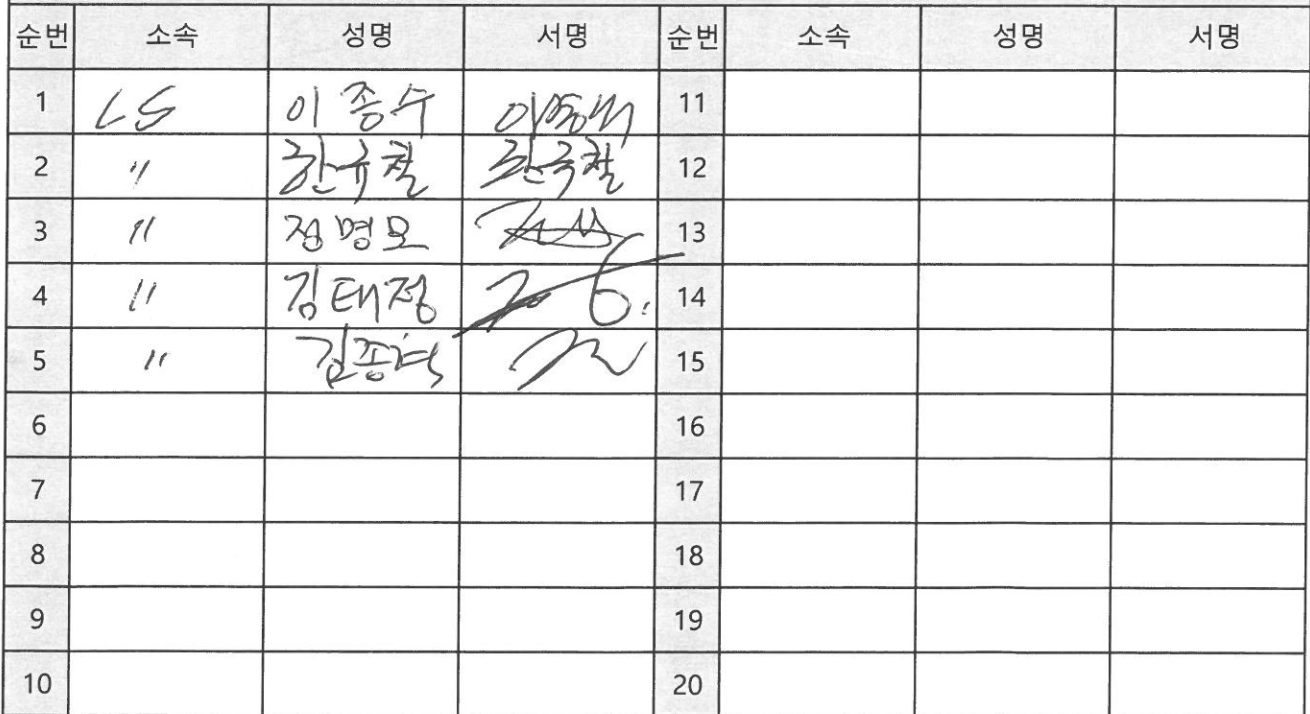 순번 소속 성명 서명 순번 소속 성명 서명
1 LS 이종수 이종수 11
2 〃 한규철 한규철 12
3 〃 정명모 13
4 〃 김태정 14
5 〃 김종혁 15
6 16
7 17
8 18
9 19
10 20